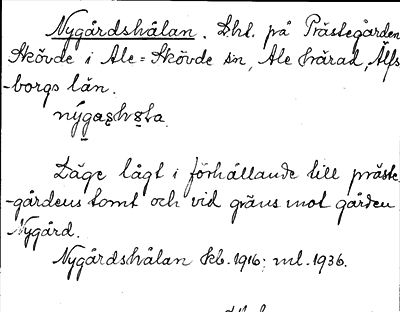 Nygårdshålan. Lht. på Prästegården
Skövde i Ale-Skövde sn, Ale härad, Älfs
-borgs län.
nýgaʂhɷ̄ɭa.
Läge lågt i förhållande till präste
-gårdens tomt och vid gräns mot gården
Nygård.
Nygårdshålan kb. 1916; ml. 1936.